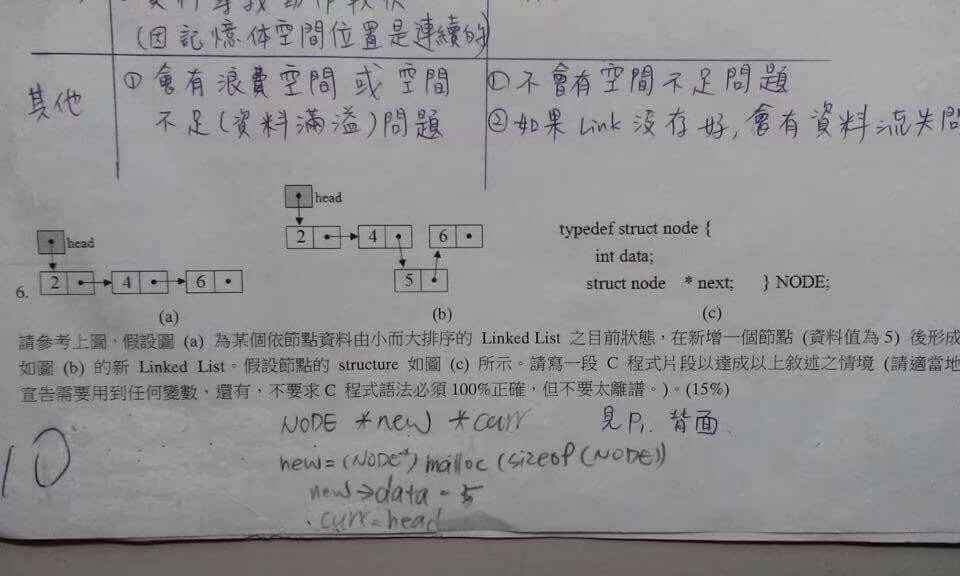 (因記憶体空間位置是連續的)
其他
① 會有浪費空間 或 空間
不足(資料滿溢)問題
① 不會有空間不足問題
② 如果 Link 沒存好, 會有資料流失問
6.
head
2 4 6
(a)
head
2 4 6
5
(b)
typedef struct node {
int data;
struct node * next; } NODE;
(c)
請參考上圖，假設圖 (a) 為某個依節點資料由小而大排序的 Linked List 之目前狀態，在新增一個節點 (資料值為 5) 後形成
如圖 (b) 的新 Linked List。假設節點的 structure 如圖 (c) 所示。請寫一段 C 程式片段以達成以上敘述之情境 (請適當地
宣告需要用到任何變數，還有，不要求 C 程式語法必須 100%正確，但不要太離譜。)。(15%)
10
NODE *new *curr 見P1. 背面.
new = (NODE*) malloc (sizeof (NODE))
new→data = 5
curr = head